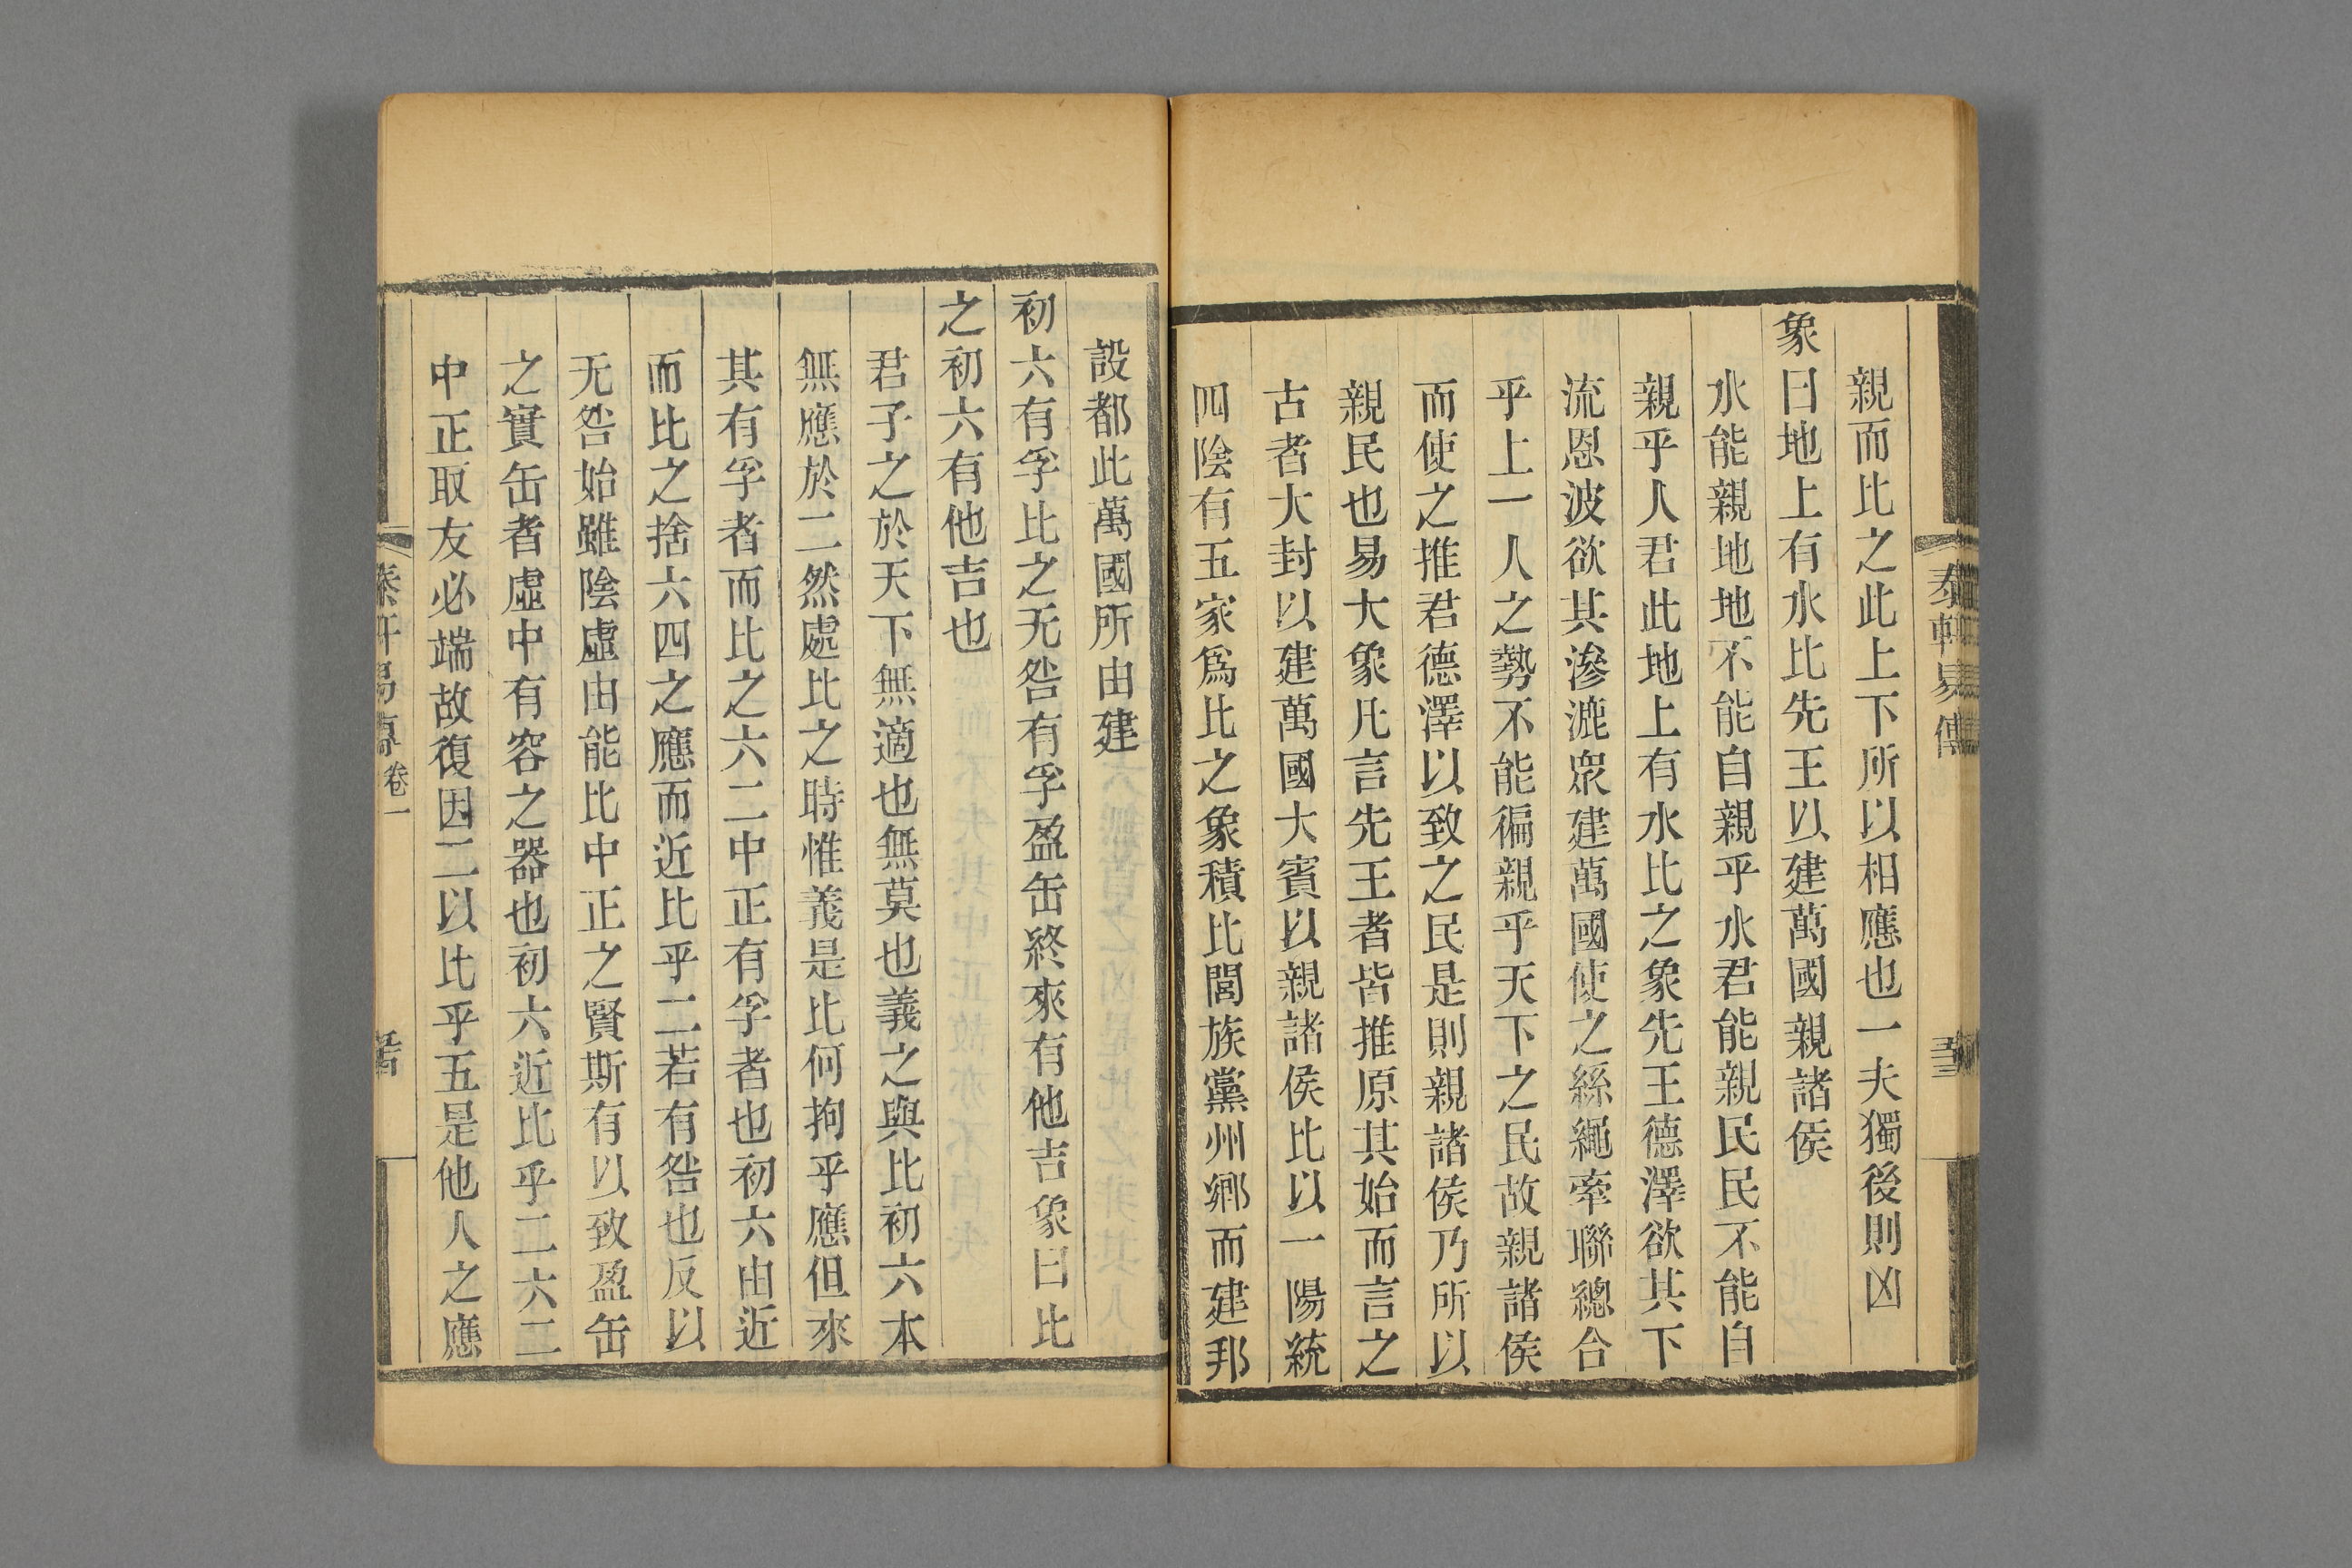 親而比之此上下所以相應也一夫獨後則凶
象曰地上有水比先王以建萬國親諸侯
水能親地地不能自親乎水君能親民民不能自
親乎人君此地上有水比之象先王德澤欲其下
流恩波欲其滲漉衆建萬國使之絲繩牽聯總合
乎上一人之勢不能徧親乎天下之民故親諸侯
而使之推君德澤以致之民是則親諸侯乃所以
親民也易大象凡言先王者皆推原其始而言之
古者大封以建萬國大賓以親諸侯比以一陽統
四陰有五家爲比之象積比閭族黨州鄉而建邦
設都此萬國所由建
初六有孚比之无咎有孚盈缶終來有他吉象曰比
之初六有他吉也
君子之於天下無適也無莫也義之與比初六本
無應於二然處比之時惟義是比何拘乎應但來
其有孚者而比之六二中正有孚者也初六由近
而比之捨六四之應而近比乎二若有咎也反以
无咎始雖陰虛由能比中正之賢斯有以致盈缶
之實缶者虛中有容之器也初六近比乎二六二
中正取友必端故復因二以比乎五是他人之應
軒易傳
卷一